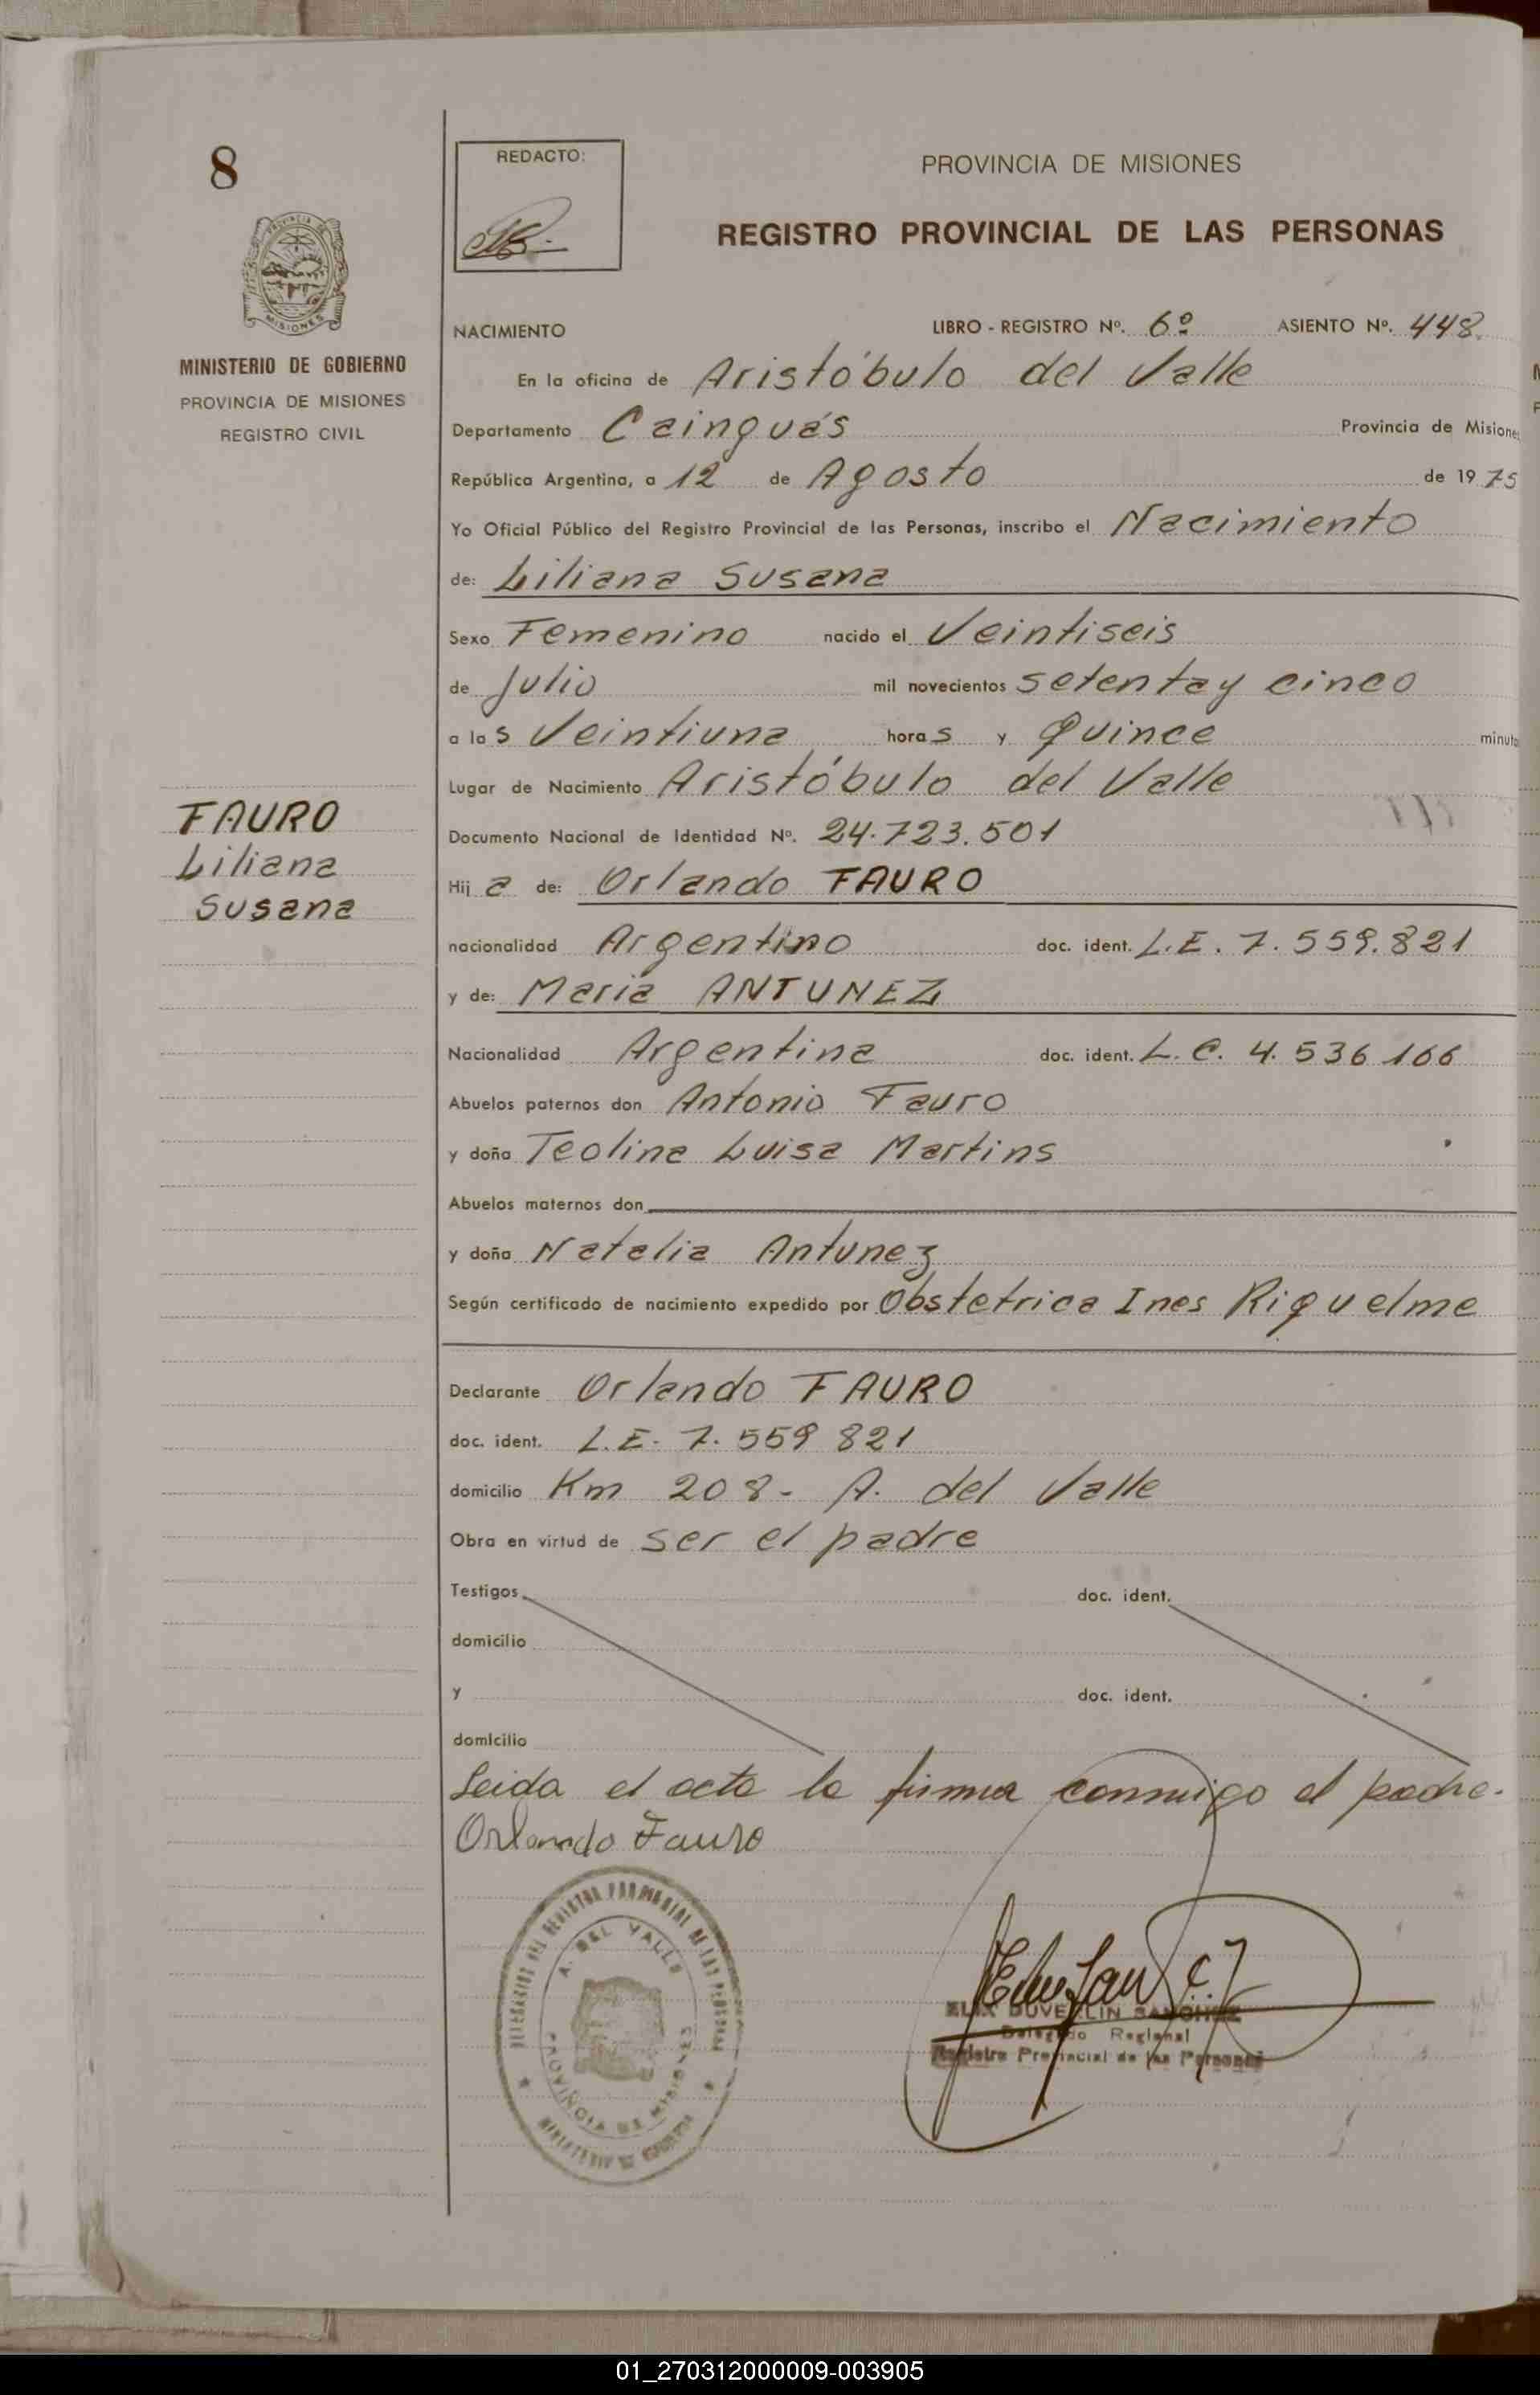 8
REDACTO:
PROVINCIA DE MISIONES
REGISTRO PROVINCIAL DE LAS PERSONAS
MISIONES
MINISTERIO DE GOBIERNO
PROVINCIA DE MISIONES
REGISTRO CIVIL
NACIMIENTO LIBRO - REGISTRO Nº. 6º ASIENTO Nº. 448.
En la oficina de Aristóbulo del Valle
Departamento Cainguás Provincia de Misiones
República Argentina, a 12 de Agosto de 1975
Yo Oficial Público del Registro Provincial de las Personas, inscribo el Nacimiento
de: Liliana Susana
Sexo Femenino nacido el Veintiseis
de Julio mil novecientos setenta y cinco
a las Veintiuna horas y Quince minuto
Lugar de Nacimiento Aristóbulo del Valle
Documento Nacional de Identidad Nº. 24.723.501
FAURO
Liliana
Susana
Hija de: Orlando FAURO
nacionalidad Argentino doc. ident. L.E. 7.559.821
y de: Maria ANTUNEZ
Nacionalidad Argentina doc. ident. L.C. 4.536 166
Abuelos paternos don Antonio Fauro
y doña Teolina Luisa Martins
Abuelos maternos don
y doña Natalia Antunez
Según certificado de nacimiento expedido por Obstetrica Ines Riquelme
Declarante Orlando FAURO
doc. ident. L.E. 7.559 821
domicilio Km 208- A. del Valle
Obra en virtud de ser el padre
Testigos doc. ident.
domicilio
y doc. ident.
domicilio
Leida el acta la firma conmigo el padre.
Orlando Fauro
A. DEL VALLE
PROVINCIA DE MISIONES
DEL REGISTRO PROVINCIAL DE LAS PERSONAS
MINISTERIO DE GOBIERNO
DUVERLIN SANCHEZ
Delegado Regional
Registro Provincial de las Personas
01_270312000009-003905